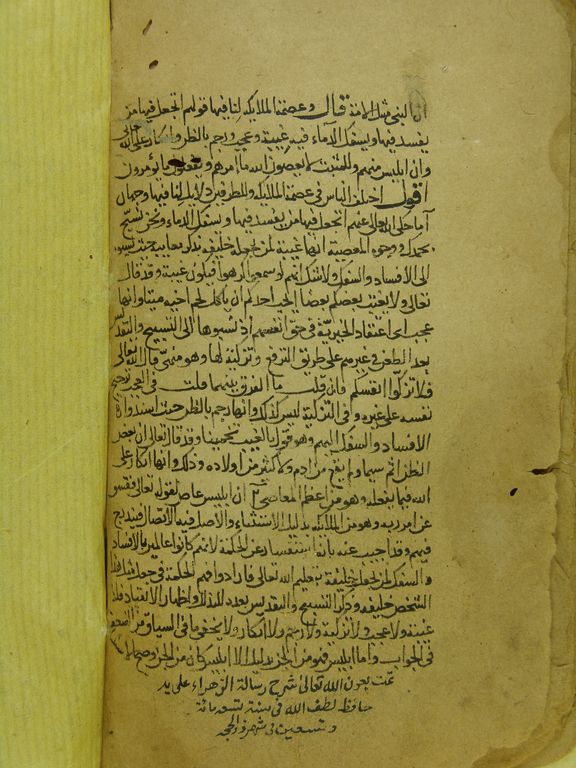 قال وعصمة الملايكة لنا فيها قولهم اتجعل فيها من
يفسد فيها ويسفك الدماء فيه غيبة وعجب ورجم بالظن وانكار على الله
وان ابليس منهم وللمثبت لا يعصون الله ما امرهم ويفعلون ما يؤمرون
اقول اختلف الناس فى عصمة الملايكة وللطرفين دلايل لنا فيها وجهان
آ ما حكى الله تعالى عنهم اتجعل فيها من يفسد فيها ويسفك الدماء ونحن نسبح
بحمدك ووجوه المعصية انها غيبة لمن يجعله خليفة بذكر معايبه حيث نسبوه
الى الافساد والسفك ولا شك انهم لو سمعوا لكرهوا فيكون غيبة وقد قال
تعالى ولا يغتب بعضكم بعضا ايحب احدكم ان ياكل لحم اخيه ميتا وانها
عجب اى اعتقاد الخيرية فى حق انفسهم اذ نسبوها الى التسبيح والتقديس
بعد الطعن فى غيرهم على طريق الترفع وتزكية لها وهو منهى قال الله تعالى
فلا تزكوا انفسكم فان قلت ما الفرق بينهما قلت فى العجب ترجيح
نفسه على غيره وفى التزكية ليس كذلك وانها رجم بالظن حيث اسندوا
الافساد والسفك اليهم وهو قول بالغيب تخمينا وقد قال تعالى ان بعض
الظن اثم سيما ولم يقع من ادم ولا اكثر من اولاده وذلك وانها انكار على
الله فيما يفعله وهو من اعظم المعاصى ان ابليس عاص لقوله تعالى ففسق
عن امر ربه وهو من الملائكة بدليل الاستثناء والاصل فيه الاتصال فيندرج
فيهم وقد اجيب عنه بانه استفسار عن الحكمة لانهم كانوا عالمين بالافساد
والسفك لمن يجعل خليفة بتعليم الله تعالى فارادوا فهم الحكمة فى جعل مثل هذا
الشخص خليفة وذكر التسبيح والتقديس بعده واظهار الانقياد فلا
غيبة ولا عجب ولا تزكية ولا رجم ولا انكار ولا يخفى ما فى السياق من الضعف
فى الجواب واما ابليس فهو من الجن بدليل الا ابليس كان من الجن
تمت بعون الله تعالى شرح رسالة الزهراء على يد
حافظ لطف الله فى سنة تسعمائة
وتسعين فى شهر ذى الحجة